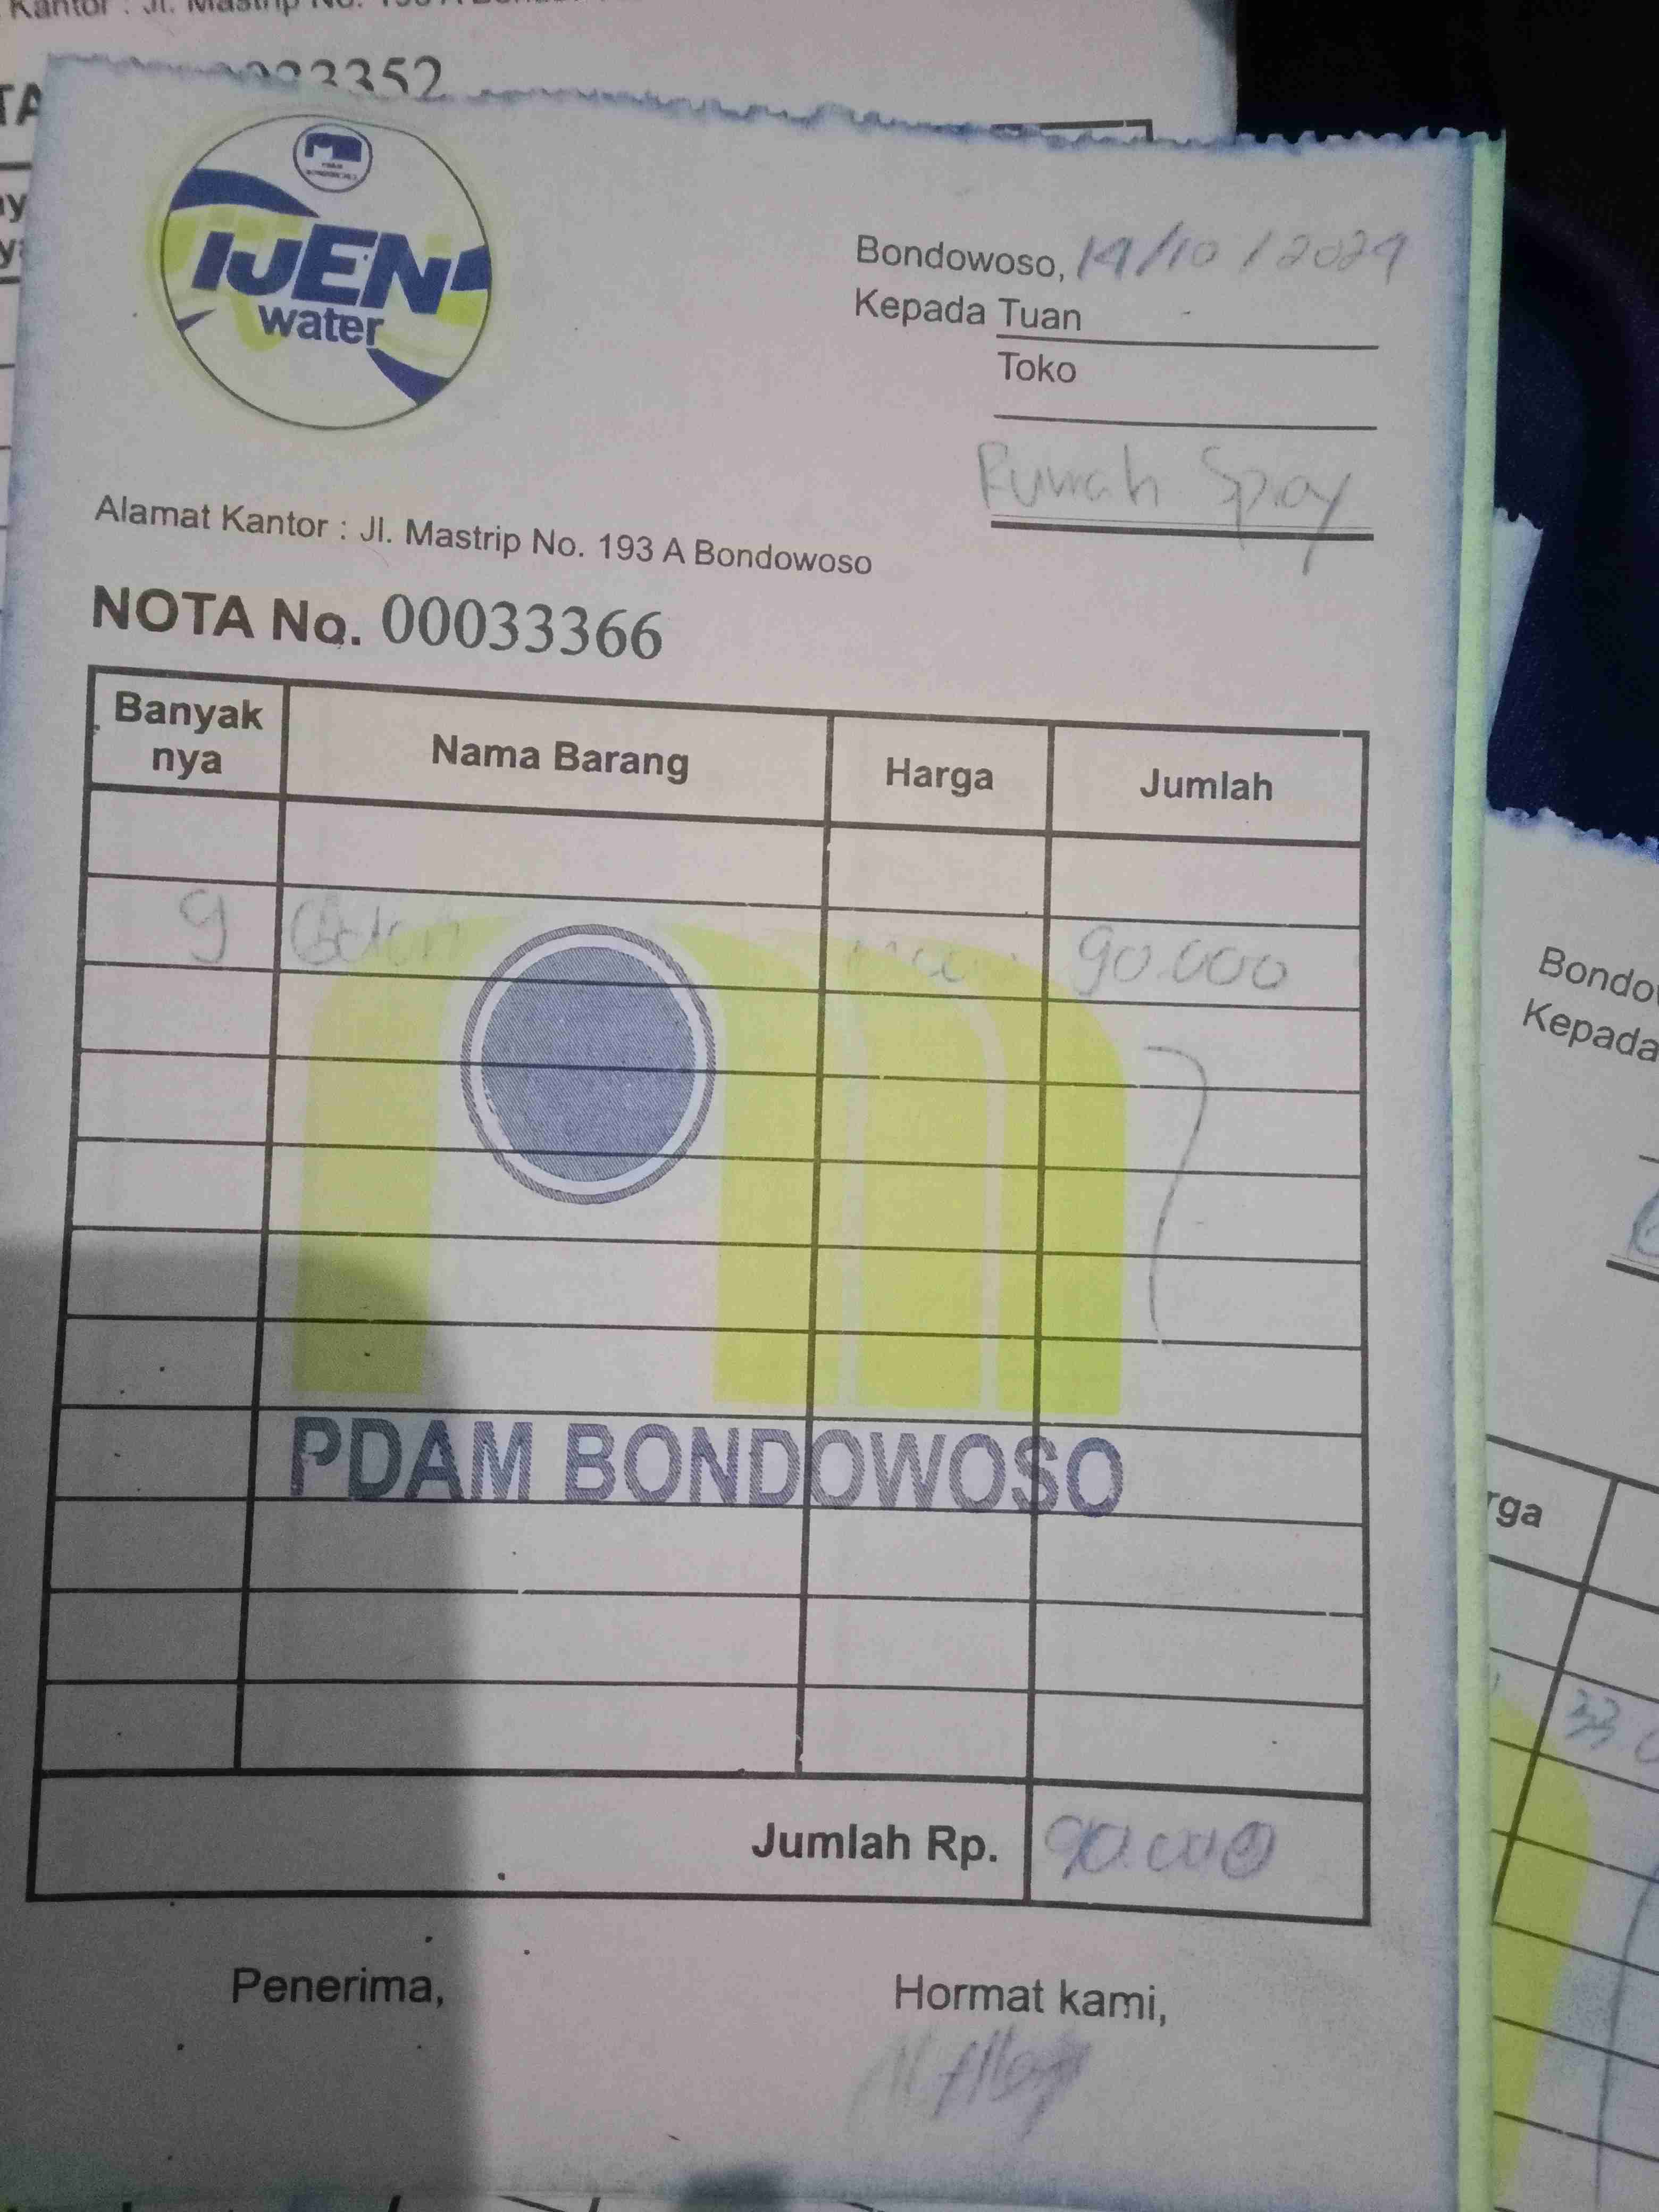 Kantor : Jl. Mastrip No. 193 A
33352
IJEN
water
Bondowoso, 14/10/2024
Kepada Tuan
Toko
Rumah Spay
Alamat Kantor : Jl. Mastrip No. 193 A Bondowoso
NOTA No. 00033366
Banyak nya Nama Barang Harga Jumlah
9 90.000
PDAM BONDOWOSO
Jumlah Rp. 90.000
Penerima, Hormat kami,
Kepada
rga
33